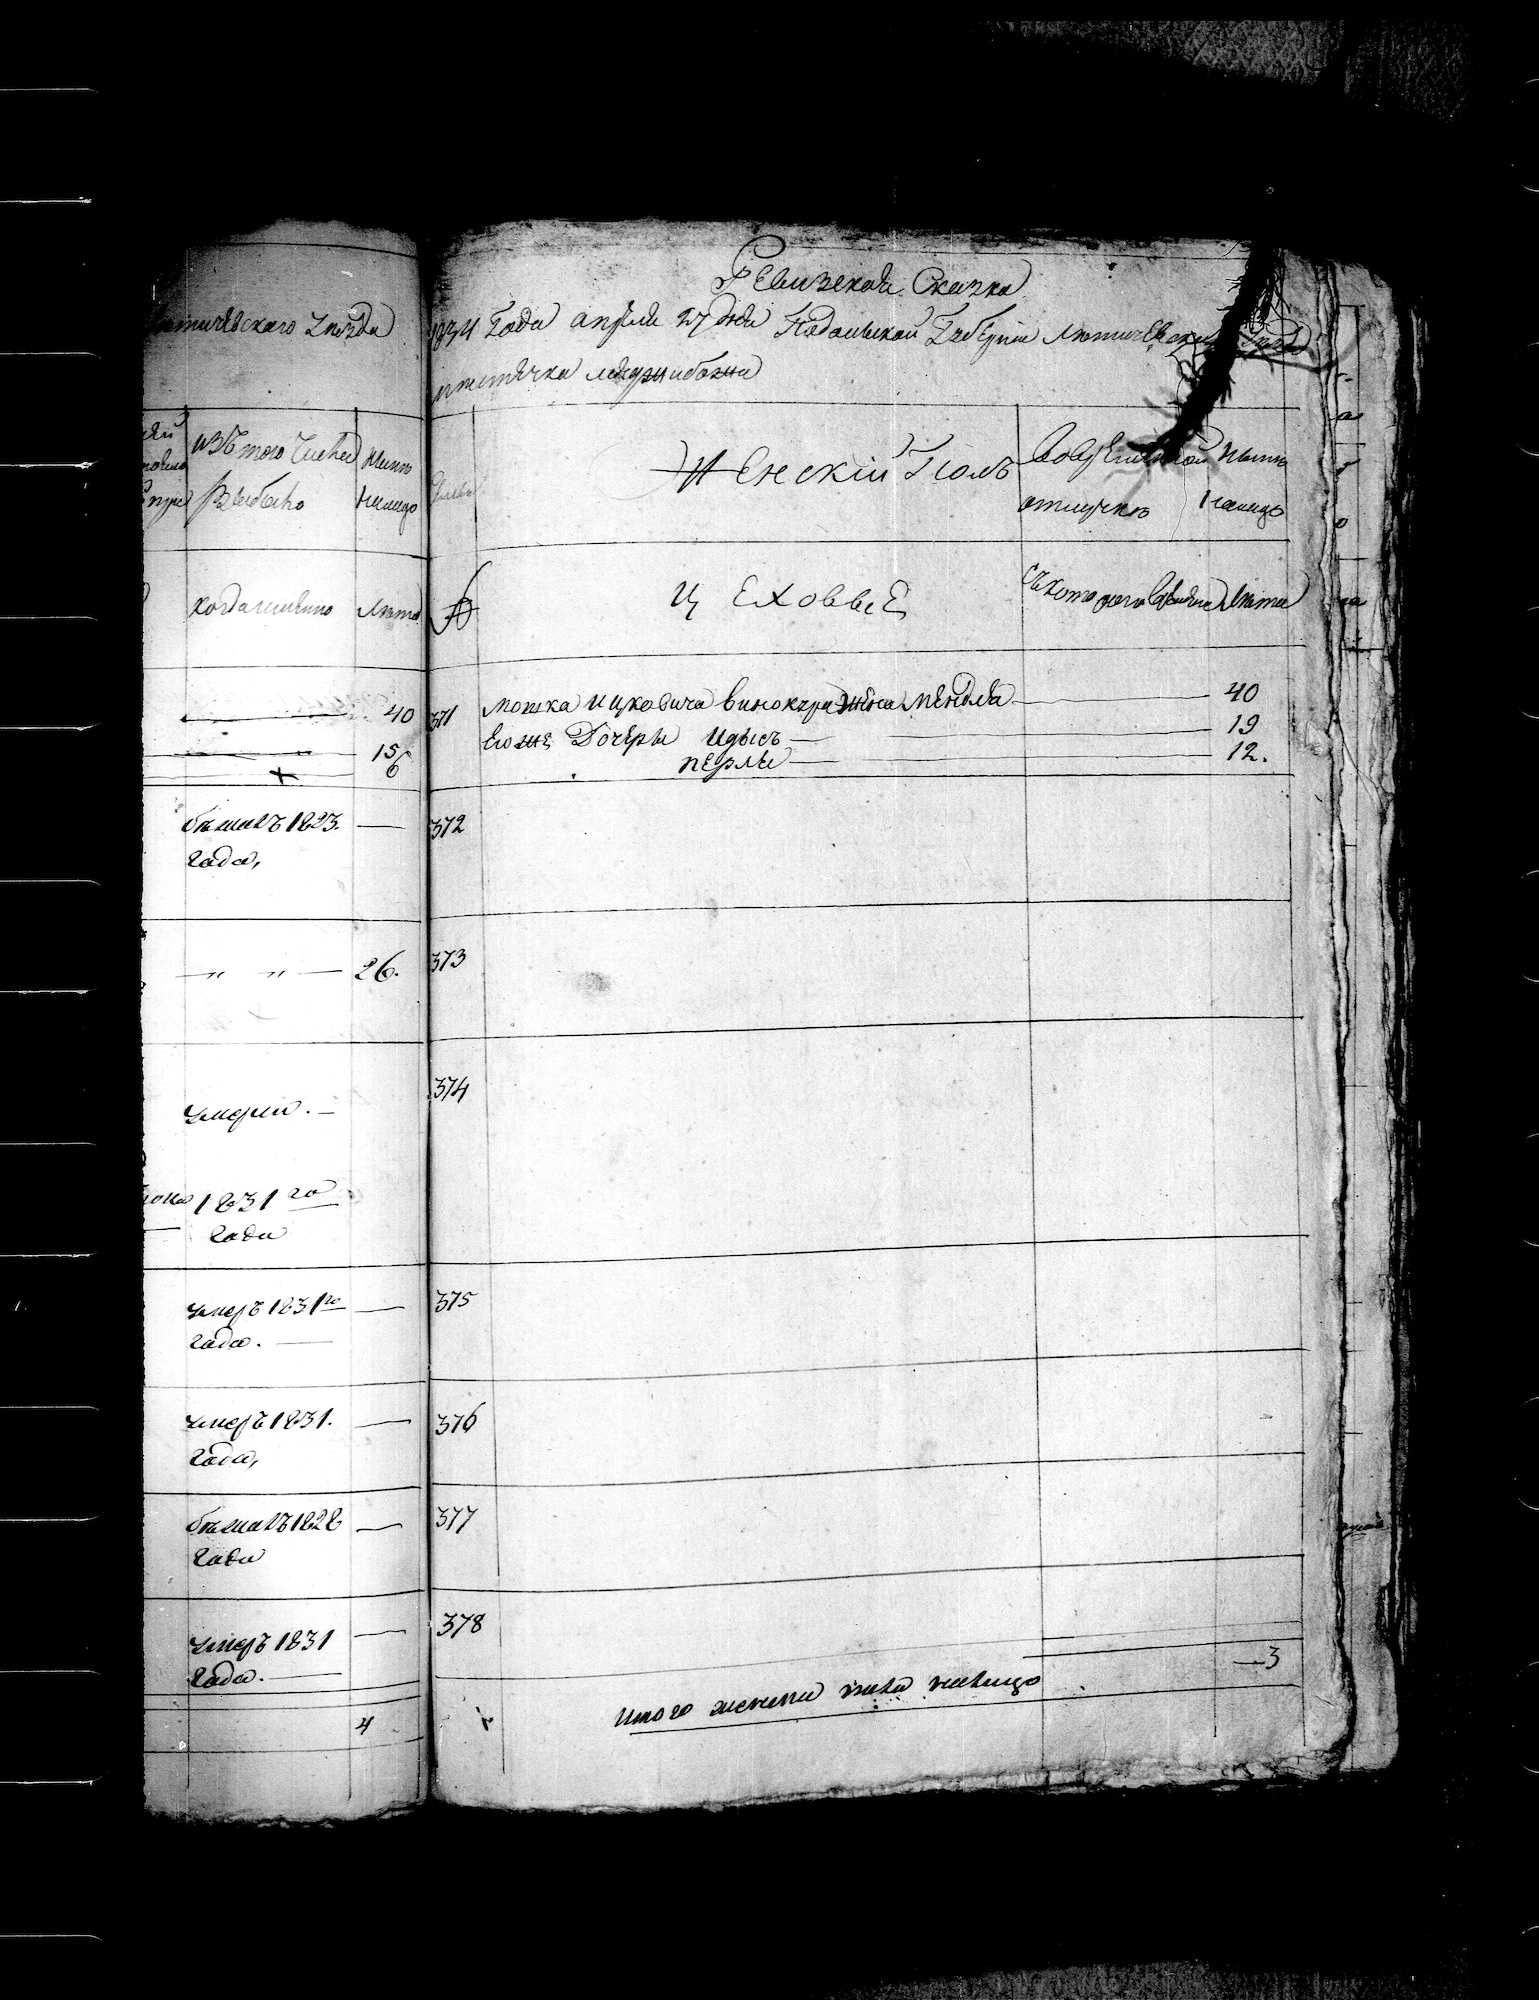 Уѣзда
изъ того числа
выбыло
нынѣ
на лицо
когда имянно
Лѣта
40
15
6
бѣжалъ 1823.
года,
26.
умерли.
1831 го
года
умеръ 1831го
года.
умеръ 1831.
года,
бѣжалъ 1828
года
умеръ 1831
года.
4
Ревизская Сказка
1834 Года апреля 27 дня Подольской Губернии Летичевскаго Уезда
местечка Меджибожа
Женский Полъ
Во временной отлучкѣ
Нынѣ на лицо
№
Цеховые
съ которого времени
Лѣта
371 Мошка Ицковича винокура жена Мендля 40
Его же Дочеры Идысъ 19
Перля 12.
372
373
374
375
376
377
378
3
Итого женска пола налицо